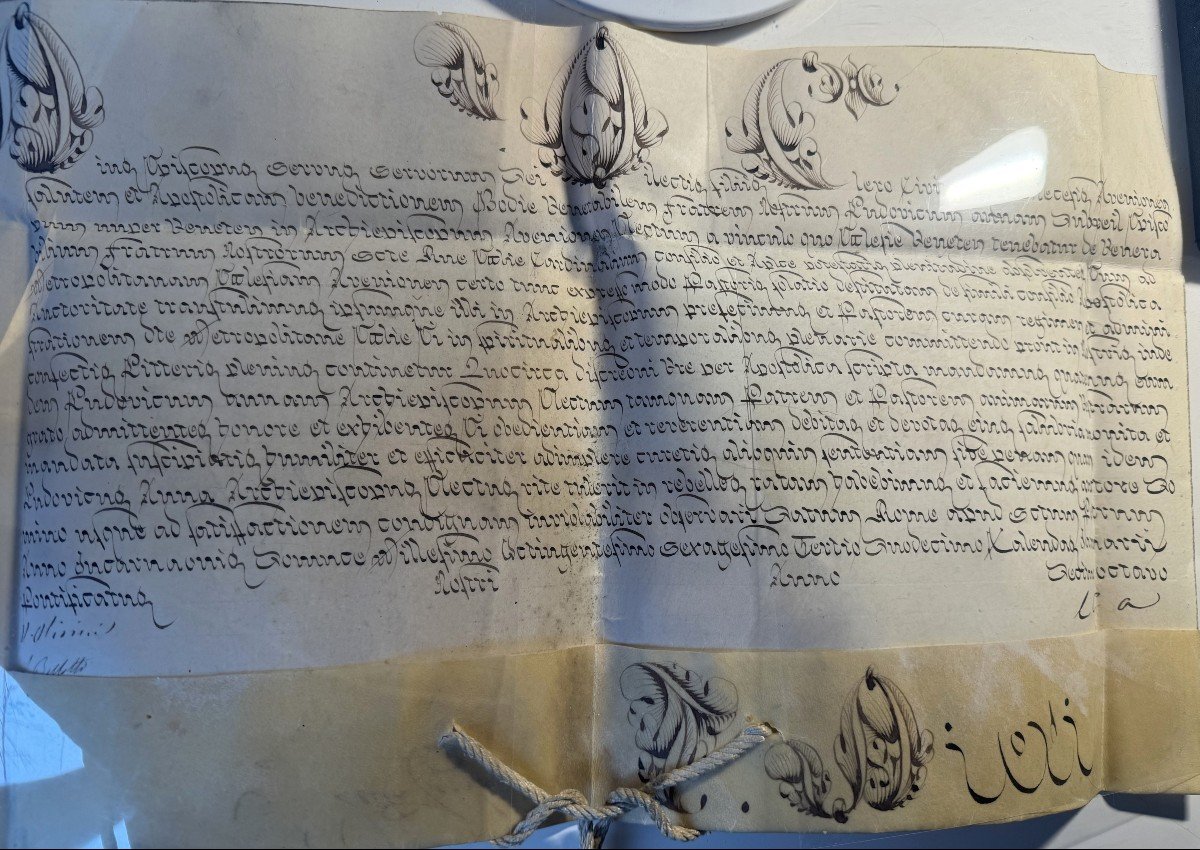 ius Episcopus Servus Servorum Dei ilectis filiis lero Civit Avenionen
salutem et Apostolicam benedictionem Hodie Venerabilem Fratrem Nostrum Ludovicum annam Dubreil Episco
pum nuper Veneten in Archiepiscopum Avenionen Electum a vinculo quo Ecclesie Veneten tenebatur de Venera
bilium Fratrum Nostrorum Scte Rne Eccle Cardinalium consilio et Aplce potestatis plenitudine absolventes Eum ad
Metropolitanam Ecclesiam Avenionen certo tunc expresso modo Pastoris solatio destitutam de simili consilio Apostolica
Auctoritate transtulimus ipsumque illi in Archiepiscopum prefecimus et Pastorem curam regimen et admini
strationem dte Metropolitane Eccle Ei in spiritualibus et temporalibus plenarie committendo prout in Nostris inde
confectis Litteris plenius continetur Quocirca discretioni Vre per Apostolica scripta mandamus quatenus eum
dem Ludovicum annam Archiepiscopum Electum tamquam Patrem et Pastorem animarum Vestrarum
grato admittentes honore et exhibentes Ei obedientiam et reverentiam debitas et devotas eius salubria monita et
mandata suscipiatis humiliter et efficaciter adimplere curetis alioquin sententiam sive penam quam idem
Ludovicus Anna Archiepiscopus Electus rite tulerit in rebelles ratam habebimus et faciemus auctore Do
mino usque ad satisfactionem condignam inviolabiliter observari Datum Rome apud Sctum Petrum
Anno Incarnationis Dominice Millesimo Octingentesimo Sexagesimo Tertio Duodecimo Kalendas Januarii
Pontificatus Nostri Anno Decimoctavo